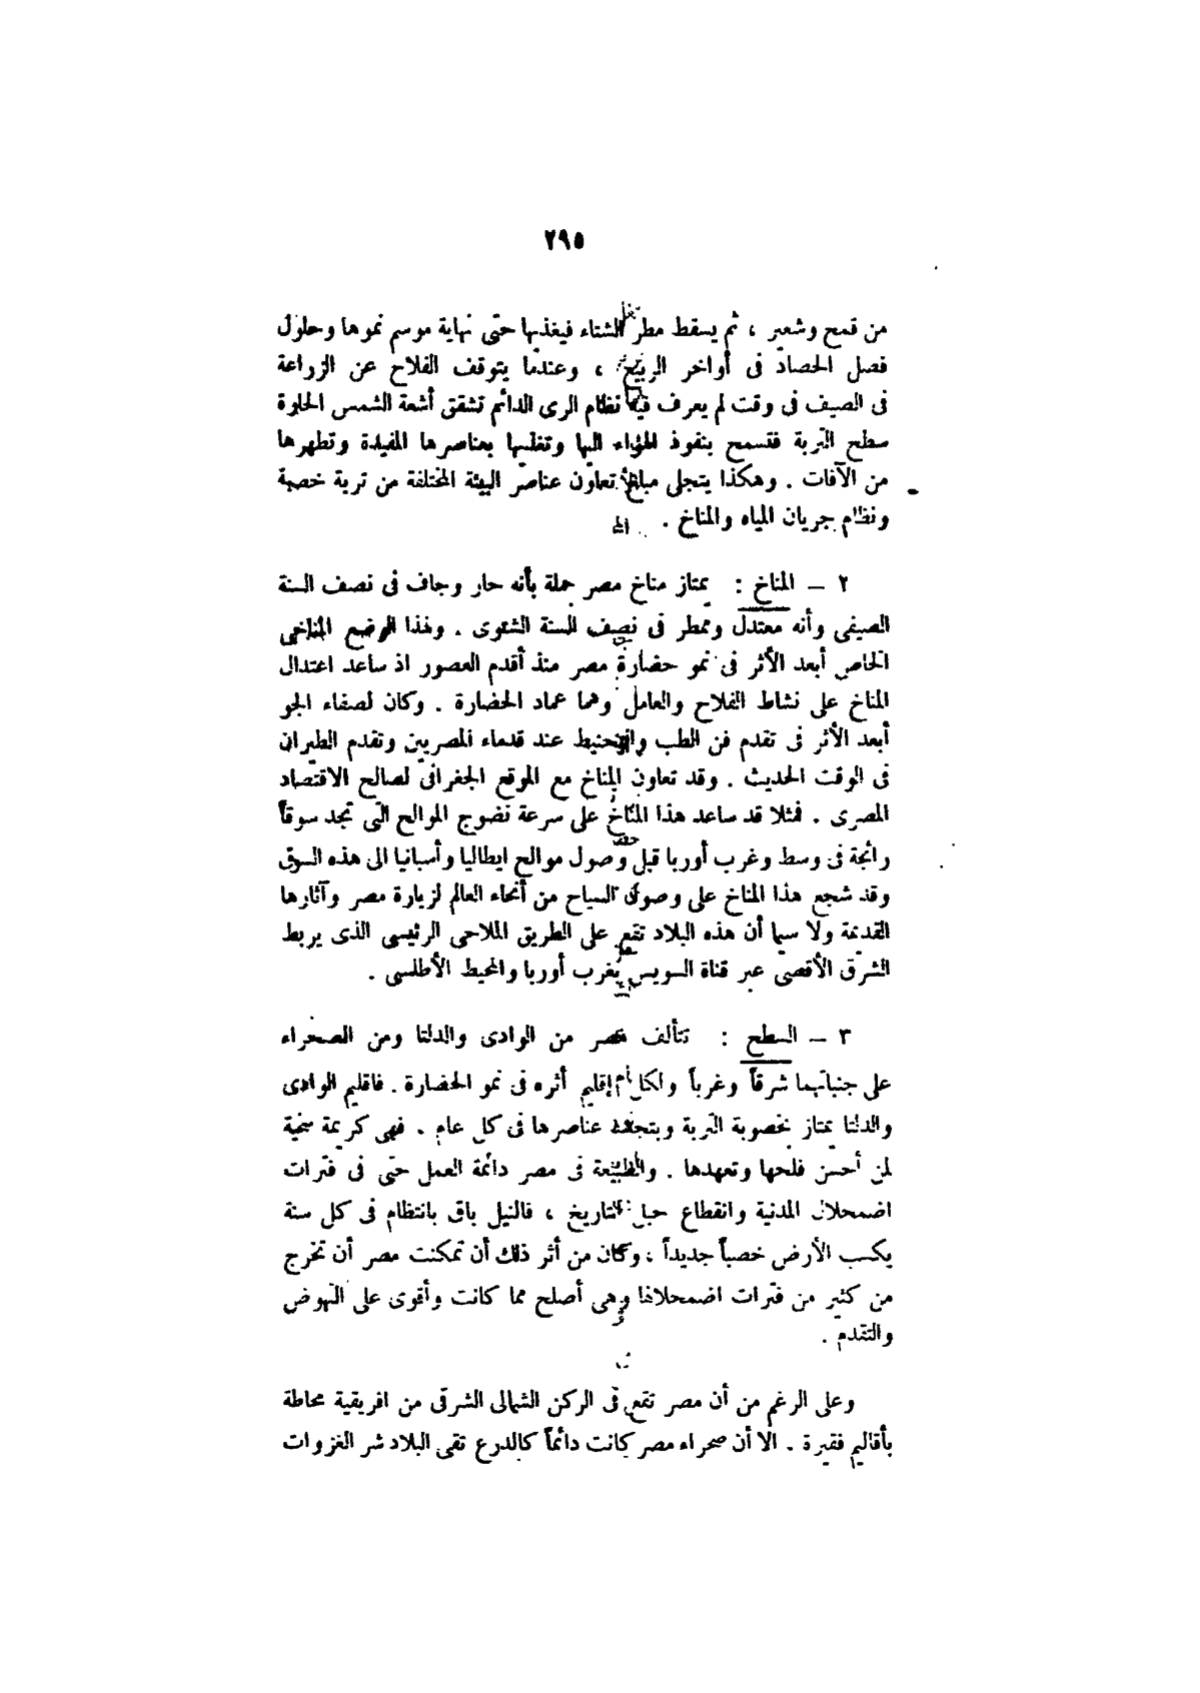 ٢٩٥
من قمح وشعير ، ثم يسقط مطر الشتاء فيغذيها حتى نهاية موسم نموها وحلول
فصل الحصاد فى أواخر الربيع ، وعندما يتوقف الفلاح عن الزراعة
فى الصيف فى وقت لم يعرف فيه نظام الرى الدائم تشقق أشعة الشمس الحارة
سطح التربة فتسمح بنفوذ الهواء اليها وتغذيها بعناصرها المفيدة وتطهرها
من الآفات . وهكذا يتجلى مبلغ تعاون عناصر البيئة المختلفة من تربة خصبة
ونظام جريان المياه والمناخ .
٢ – المناخ : يمتاز مناخ مصر جملة بأنه حار وجاف فى نصف السنة
الصيفى وأنه معتدل وممطر فى نصف السنة الشتوى . ولهذا الوضع المناخى
الخاص أبعد الأثر فى نمو حضارة مصر منذ أقدم العصور اذ ساعد اعتدال
المناخ على نشاط الفلاح والعامل وهما عماد الحضارة . وكان لصفاء الجو
أبعد الأثر فى تقدم فن الطب والتحنيط عند قدماء المصريين وتقدم الطيران
فى الوقت الحديث . وقد تعاون المناخ مع الموقع الجغرافى لصالح الاقتصاد
المصرى . فمثلا قد ساعد هذا المناخ على سرعة نضوج الموالح التى تجد سوقاً
رائجة فى وسط وغرب أوربا قبل وصول موالح ايطاليا وأسبانيا الى هذه السوق
وقد شجع هذا المناخ على وصول السياح من أنحاء العالم لزيارة مصر وآثارها
القديمة ولا سيما أن هذه البلاد تقع على الطريق الملاحى الرئيسى الذى يربط
الشرق الأقصى عبر قناة السويس بغرب أوربا والمحيط الأطلسى .
٣ – السطح : تتألف مصر من الوادى والدلتا ومن الصحراء
على جنباتهما شرقاً وغرباً ولكل إقليم أثره فى نمو الحضارة . فاقليم الوادى
والدلتا يمتاز بخصوبة التربة وبتجدد عناصرها فى كل عام . فهى كريمة سخية
لمن أحسن فلحها وتعهدها . والطبيعة فى مصر دائمة العمل حتى فى فترات
اضمحلال المدنية وانقطاع حبل التاريخ ، فالنيل باق بانتظام فى كل سنة
يكسب الأرض خصباً جديداً ، وكان من أثر ذلك أن تمكنت مصر أن تخرج
من كثير من فترات اضمحلالها وهى أصلح مما كانت وأقوى على النهوض
والتقدم .
وعلى الرغم من أن مصر تقع فى الركن الشمالى الشرقى من افريقية محاطة
بأقاليم فقيرة . الا أن صحراء مصر كانت دائماً كالدرع تقى البلاد شر الغزوات